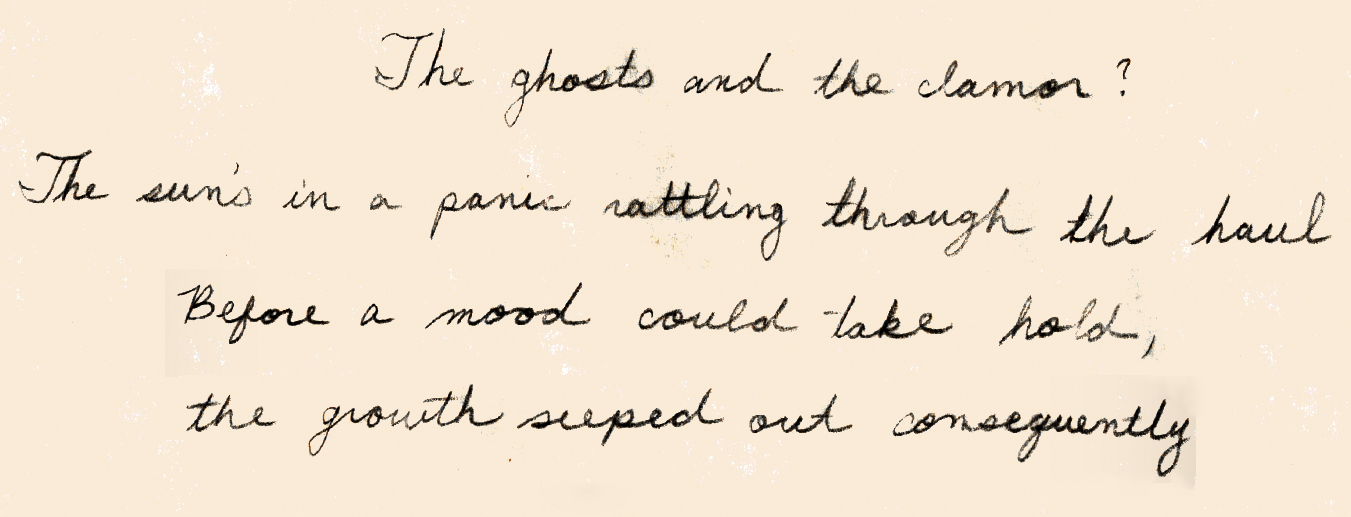 The ghosts and the clamor?
The sun's in a panic rattling through the haul
Before a mood could take hold,
the growth seeped out consequently